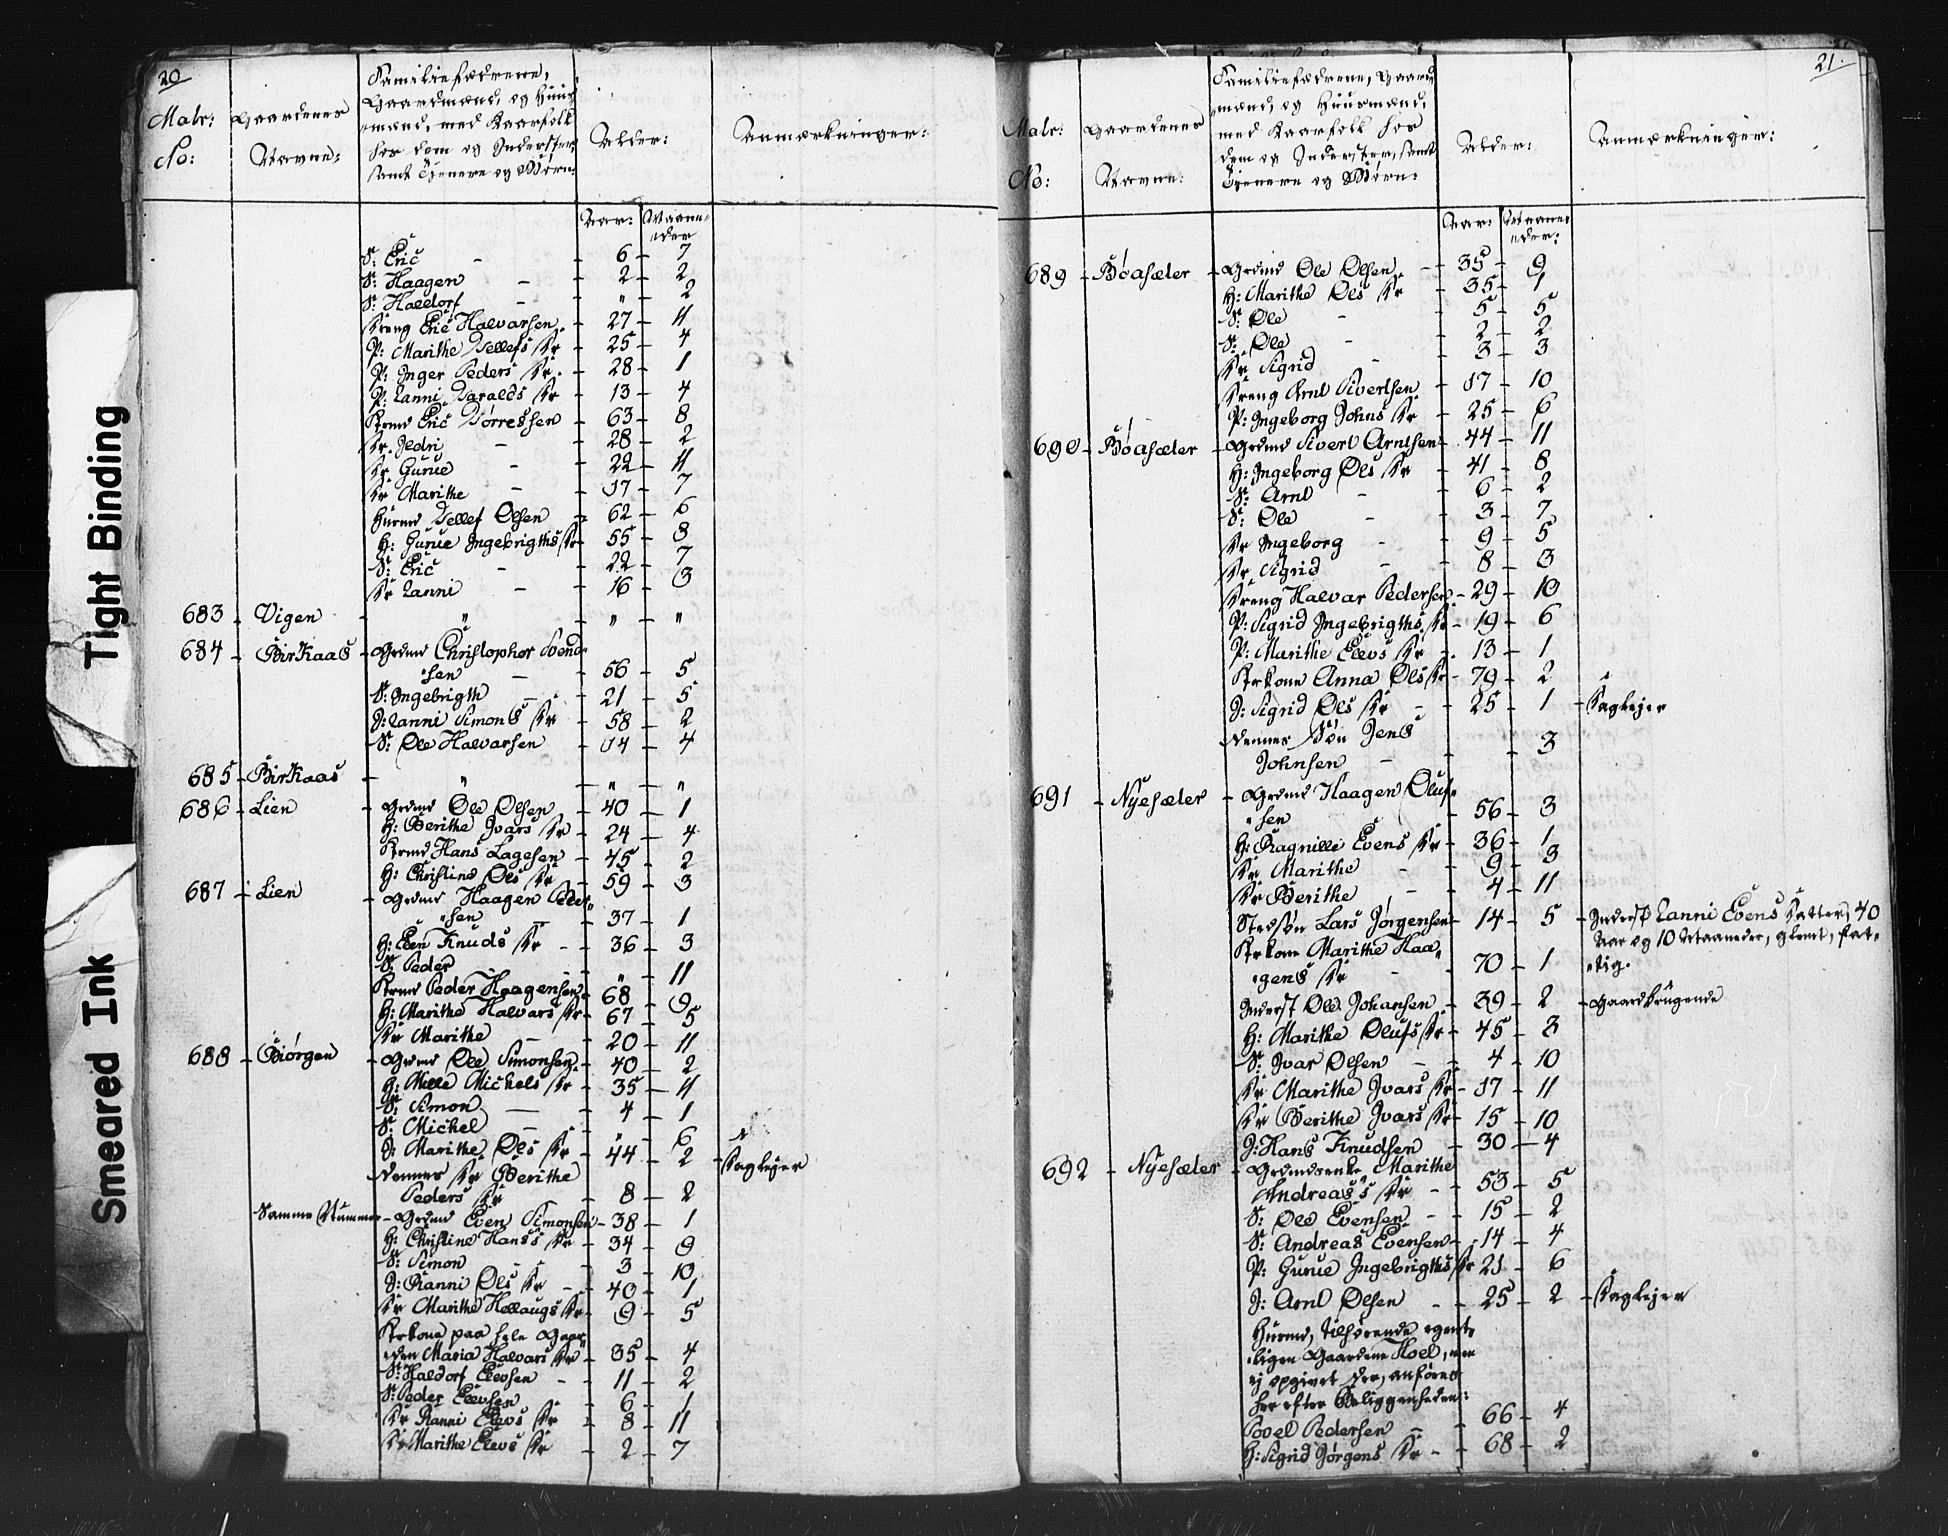 20
Matr:
No:
Gaardenes
Navne:
Familiefædrene,
Gaardmænd, og Huus-
mænd, med Kaarfolk
hos dem og Inderster,
samt Tjenere og Børn:
Alder:
Anmærkninger:
Aar: Maane-
der
S: Eric - 6 - 7
S: Haagen - 2 - 2
S: Haldorf - " - 2
Dreng Eric Halvarsen - 27 - 11
P: Marithe Tellefs Dr - 25 - 4
P: Inger Peders Dr. - 28 - 1
P: Lanni Haralds Dr - 13 - 4
Krmd Eric Tørressen - 63 - 8
Dr. Jedri - 28 - 2
Dr. Gurue - 22 - 11
Dr Marithe - 17 - 7
Hürmd Tellef Olsen - 62 - 6
H: Gurue Ingebrigths Dr - 55 - 8
S: Eric - 22 - 7
Dr Lanni - 16 - 3
683 - Vigen - " - " - "
684 - Birkaas - Grdmd Christophor Svend-
sen - 56 - 5
S: Ingebrigth - 21 - 5
I: Lanni Simons Dr - 58 - 2
S: Ole Halvarsen - 14 - 4
685 - Birkaas - " - " - "
686 - Lien - Grdmd Ole Olsen - 40 - 1
H: Berithe Ivars Dr - 24 - 4
Krmd Hans Lagesen - 45 - 2
H: Christine Ols Dr - 59 - 3
687 - Lien - Grdmd Haagen Peder-
sen - 37 - 1
H: Elen Knuds Dr - 36 - 3
S: Peder - " - 11
Krmd Peder Haagensen - 68 - 9
H: Marithe Halvars Dr - 67 - 5
Dr Marithe - 20 - 11
688 - Biørgen - Grdmd Ole Simonsen - 40 - 2
H: Mille Michels Dr - 35 - 11
S: Simon - 4 - 1
S: Michel - " - 6
I: Marithe Ols Dr - 44 - 2 - Daglejer
Dennes Dr Berithe
Peders Dr - 8 - 2
Samme Nummer - Grdmd Even Simonsen - 38 - 1
H: Christine Hans's Dr - 34 - 9
S: Simon - 3 - 10
I: Ranni Ols Dr - 40 - 1
Dr Marithe Hellaugs Dr - 9 - 5
Krkone paa hele Gaar-
den Maria Halvars Dr - 35 - 4
S: Haldorf Elevsen - 11 - 2
S: Peder Elevsen - 6 - 1
Dr Ranni Elevs Dr - 8 - 11
Dr Marithe Elevs Dr - 2 - 7
21.
Matr:
No:
Gaardenes
Navne:
Familiefædrene, Gaard-
mænd, og Huusmænd,
med Kaarfolk hos
dem og Inderster, samt
Tjenere og Børn:
Alder:
Anmærkninger:
Aar: Maane-
der:
689 - Bøasæter - Grdmd Ole Olsen - 35 - 9
H: Marithe Ols Dr - 35 - 1
S: Ole - 5 - 5
S: Ole - 2 - 2
Dr Sigrid - 3 - 3
Dreng Arnt Sivertsen - 17 - 10
P: Ingeborg Johns Dr - 25 - 6
690 - Bøasæter - Grdmd Sivert Arntsen - 44 - 11
H: Ingeborg Ols Dr - 41 - 8
S: Arnt - 6 - 2
S: Ole - 3 - 7
Dr Ingeborg - 9 - 5
Dr Sigrid - 8 - 3
Dreng Halvar Pedersen - 29 - 10
P: Sigrid Ingebrigths Dr - 19 - 6
P: Marithe Elevs Dr - 13 - 1
Krkone Anna Ols Dr - 79 - 2
I: Sigrid Ols Dr - 25 - 1 - Daglejer
Dennes Søn Jens
Johnsen - 3
691 - Nyesæter - Grdmd Haagen Oluf-
sen - 56 - 3
H: Ragnille Evens Dr - 36 - 1
Dr Marithe - 9 - 3
Dr Berithe - 4 - 11
Stedsøn Lars Jørgensen - 14 - 5 - Inderst Lanni Evens Datter, 40
Aar og 10 Maaneder, glemt, fat-
tig.
Krkone Marithe Haa-
gens Dr - 70 - 1
Inderst Ole Johansen - 39 - 2 - gaardbrugende
H: Marithe Olufs Dr - 45 - 3
S: Ivar Olsen - 4 - 10
Dr Marithe Ivars Dr - 17 - 11
Dr Berithe Ivars Dr - 15 - 10
I: Hans Knudsen - 30 - 4
692 - Nyesæter - Grdmdsenke Marithe
Andreas's Dr - 53 - 5
S: Ole Evensen - 15 - 2
S: Andreas Evensen - 14 - 4
P: Gurue Ingebrigths Dr - 21 - 6
I: Arnt Olsen - 25 - 2 - Daglejer
Hürmd, tilhørende egent-
ligen Gaardene Hoel, men
ej opgivet der, anføres
her efter Beliggenheden:
Povel Pedersen - 66 - 4
H: Sigrid Jørgens Dr - 68 - 2
Tight Binding
Smeared Ink